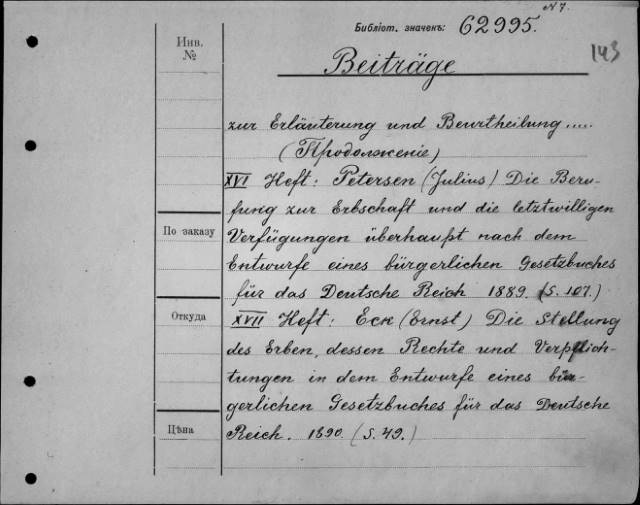 N 7.
Библіот. значекъ: 62995.
143
Инв.
№
Beiträge
zur Erläuterung und Beurtheilung.....
(Продолженіе)
XVI Heft: Petersen (Julius) Die Beru-
fung zur Erbschaft und die letztwilligen
По заказу
Verfügungen überhaupt nach dem
Entwurfe eines bürgerlichen Gesetzbuches
für das Deutsche Reich 1889. (S. 107.)
Откуда
XVII Heft: Eck (Ernst) Die Stellung
des Erben, dessen Rechte und Verpflich-
tungen in dem Entwurfe eines bür-
gerlichen Gesetzbuches für das Deutsche
Цѣна
Reich. 1890. (S. 49.)